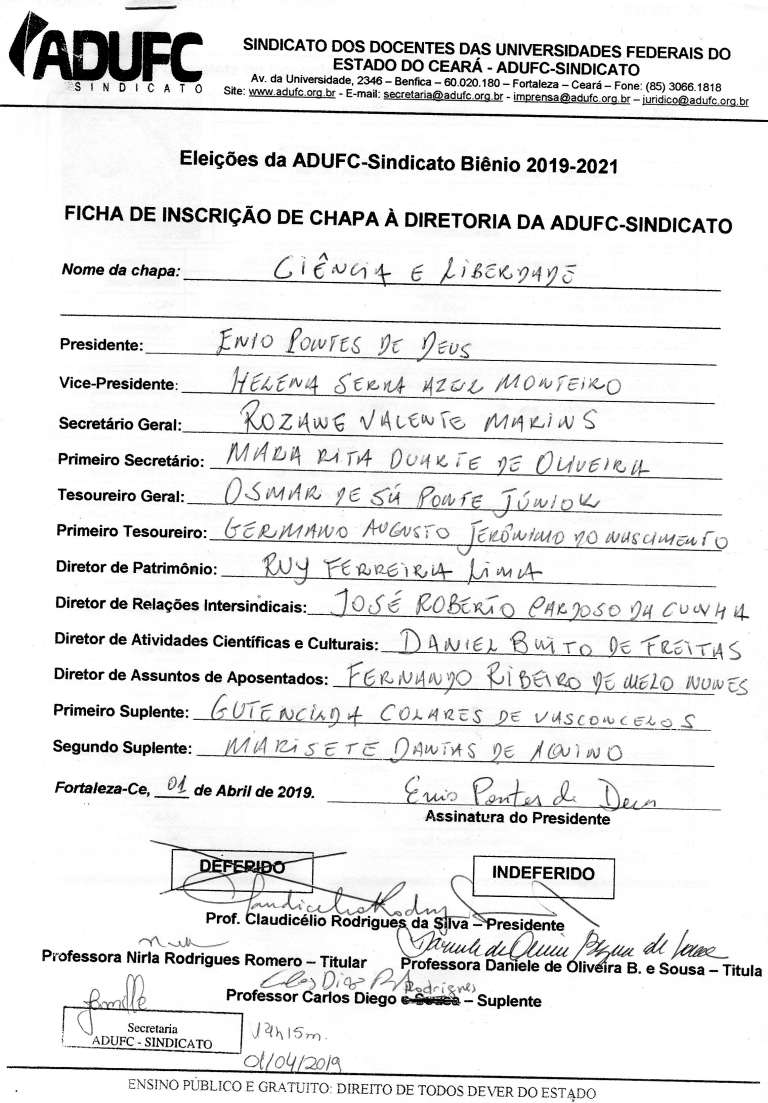 ADUFC
SINDICATO
SINDICATO DOS DOCENTES DAS UNIVERSIDADES FEDERAIS DO
ESTADO DO CEARÁ - ADUFC-SINDICATO
Av. da Universidade, 2346 – Benfica – 60.020.180 – Fortaleza – Ceará – Fone: (85) 3066.1818
Site: www.adufc.org.br - E-mail: secretaria@adufc.org.br - imprensa@adufc.org.br – juridico@adufc.org.br
Eleições da ADUFC-Sindicato Biênio 2019-2021
FICHA DE INSCRIÇÃO DE CHAPA À DIRETORIA DA ADUFC-SINDICATO
Nome da chapa: CIÊNCIA E LIBERDADE
Presidente: ENIO PONTES DE DEUS
Vice-Presidente: HELENA SERRA AZUL MONTEIRO
Secretário Geral: ROZANE VALENTE MARINS
Primeiro Secretário: MARIA RITA DUARTE DE OLIVEIRA
Tesoureiro Geral: OSMAR DE SÁ PONTE JÚNIOR
Primeiro Tesoureiro: GERMANO AUGUSTO JERÔNIMO DO NASCIMENTO
Diretor de Patrimônio: RUY FERREIRA LIMA
Diretor de Relações Intersindicais: JOSÉ ROBERTO CARDOSO DA CUNHA
Diretor de Atividades Científicas e Culturais: DANIEL BRITO DE FREITAS
Diretor de Assuntos de Aposentados: FERNANDO RIBEIRO DE MELO NUNES
Primeiro Suplente: GUTENCILDA COLARES DE VASCONCELOS
Segundo Suplente: MARISETE DANTAS DE AQUINO
Fortaleza-Ce, 01 de Abril de 2019. Enio Pontes de Deus
Assinatura do Presidente
DEFERIDO INDEFERIDO
Claudicélio Rodrigues
Prof. Claudicélio Rodrigues da Silva – Presidente
Professora Nirla Rodrigues Romero – Titular Professora Daniele de Oliveira B. e Sousa – Titula
Professor Carlos Diego Rodrigues e Souza – Suplente
Secretaria
ADUFC - SINDICATO
15m.
01/04/2019
ENSINO PÚBLICO E GRATUITO: DIREITO DE TODOS DEVER DO ESTADO